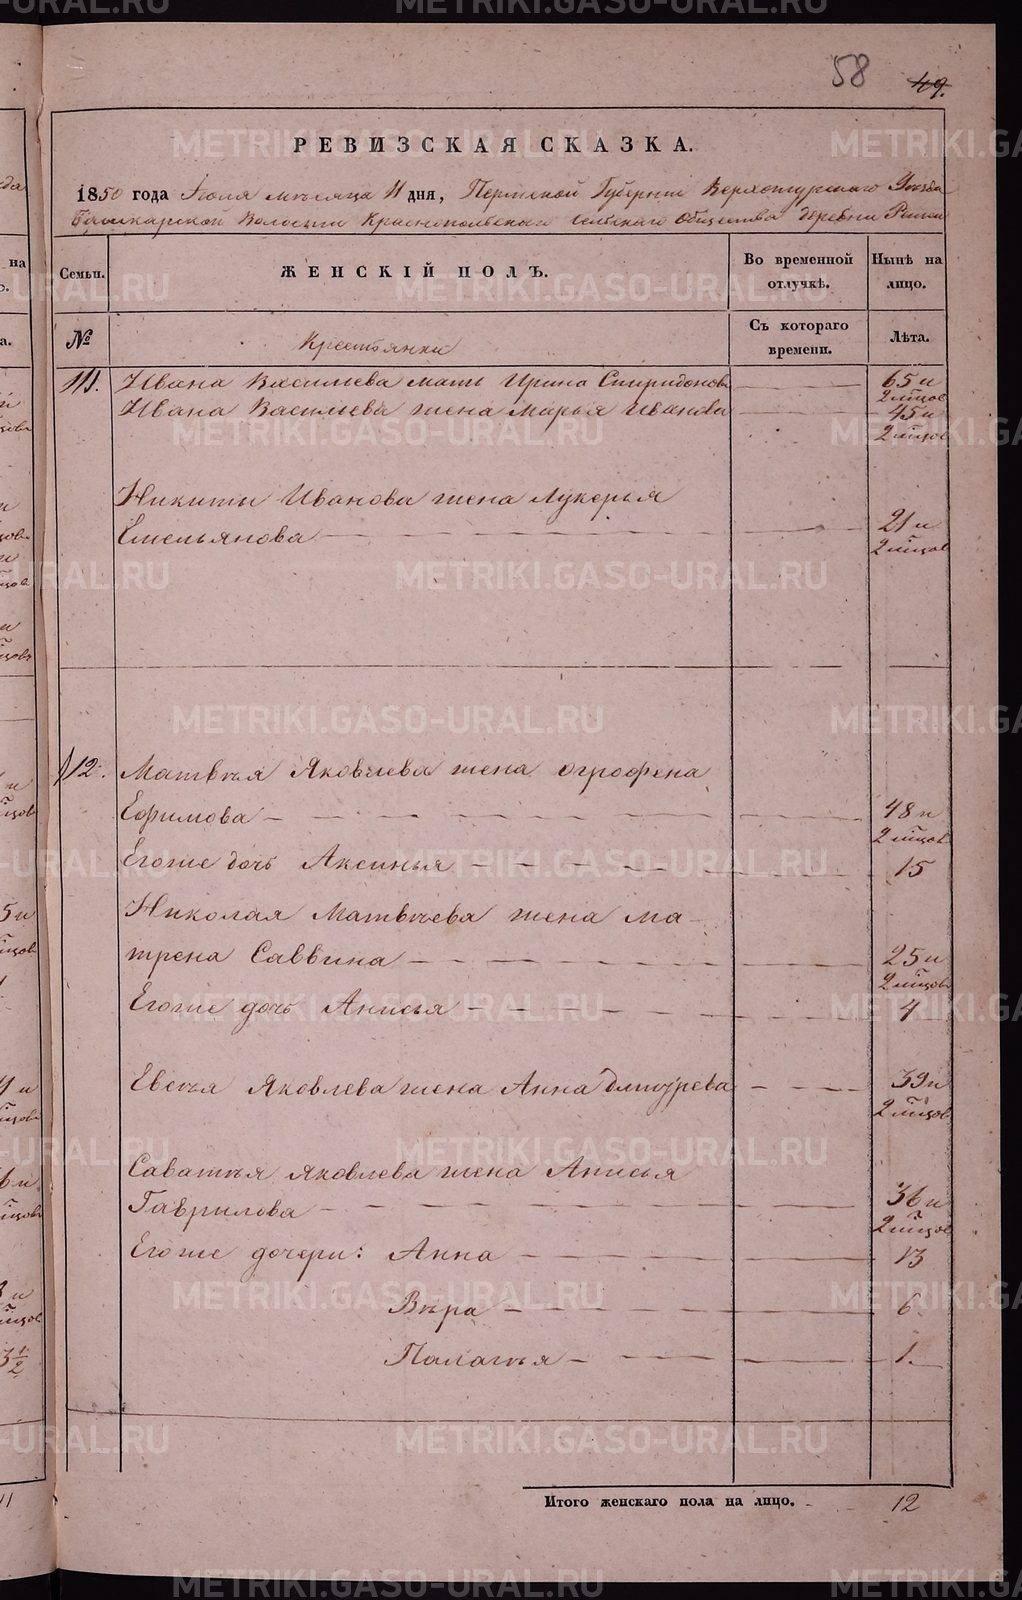 58 49.
РЕВИЗСКАЯ СКАЗКА.
1850 года Іюля мѣсяца 11 дня, Пермской Губерніи Верхотурскаго Уѣзда
Башкарской Волости Краснопольскаго сельскаго Общества деревни
Семьи. ЖЕНСКІЙ ПОЛЪ. Во временной отлучкѣ. Нынѣ на лицо.
№ Крестьянки Съ котораго времени. Лѣта.
111. Ивана Васильева мать Ирина Спиридонова 65 и
2 мѣсцов
Ивана Васильева жена Марья Иванова 45 и
2 мѣсцов
Никиты Иванова жена Лукерья
Емельянова 21 и
2 мѣсцов
112. Матвѣя Яковлева жена Огрофена
Ефимова 48 и
2 мѣсцов
Егоже дочь Аксинья 15
Николая Матвѣева жена Ма-
трена Саввина 25 и
2 мѣсцов
Егоже дочь Анисья 4
Евсѣя Яковлева жена Анна Дмитрева 39 и
2 мѣсцов
Саватѣя Яковлева жена Анисья
Гаврилова 36 и
2 мѣсцов
Егоже дочери: Анна 13
Вѣра 6
Палагѣя 1.
Итого женскаго пола на лицо. 12
METRIKI.GASO-URAL.RU